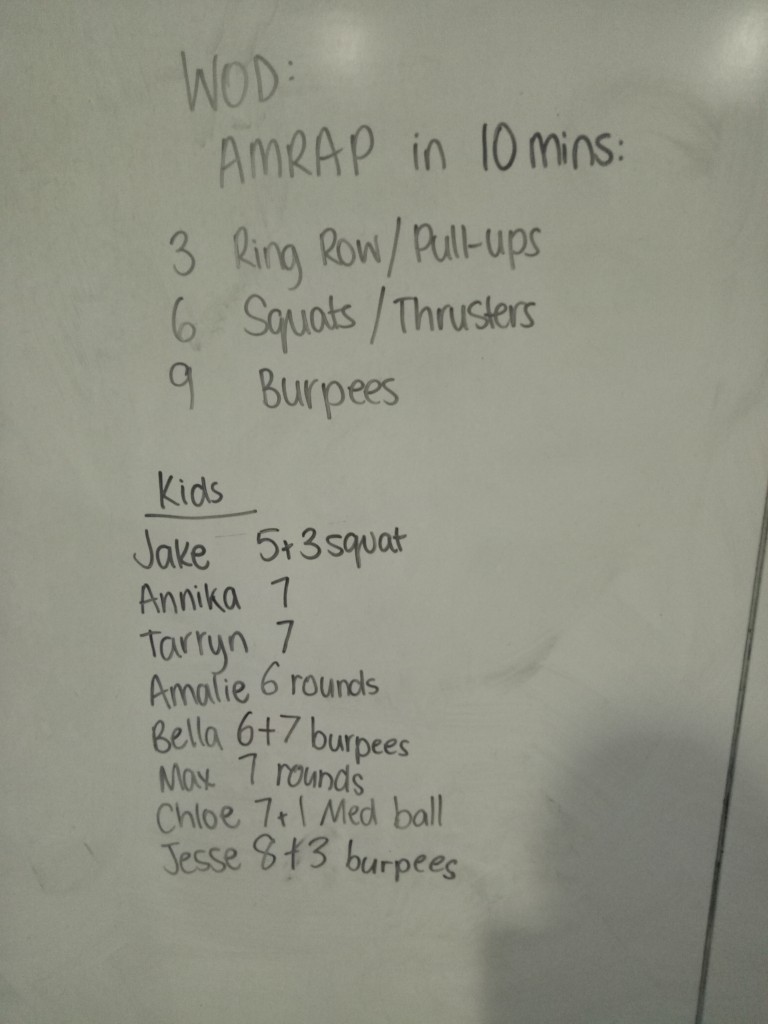 WOD:
AMRAP in 10 mins:
3 Ring Row/Pull-ups
6 Squats/Thrusters
9 Burpees
Kids
Jake 5+3 squat
Annika 7
Tarryn 7
Amalie 6 rounds
Bella 6+7 burpees
Max 7 rounds
Chloe 7+1 Med ball
Jesse 8+3 burpees